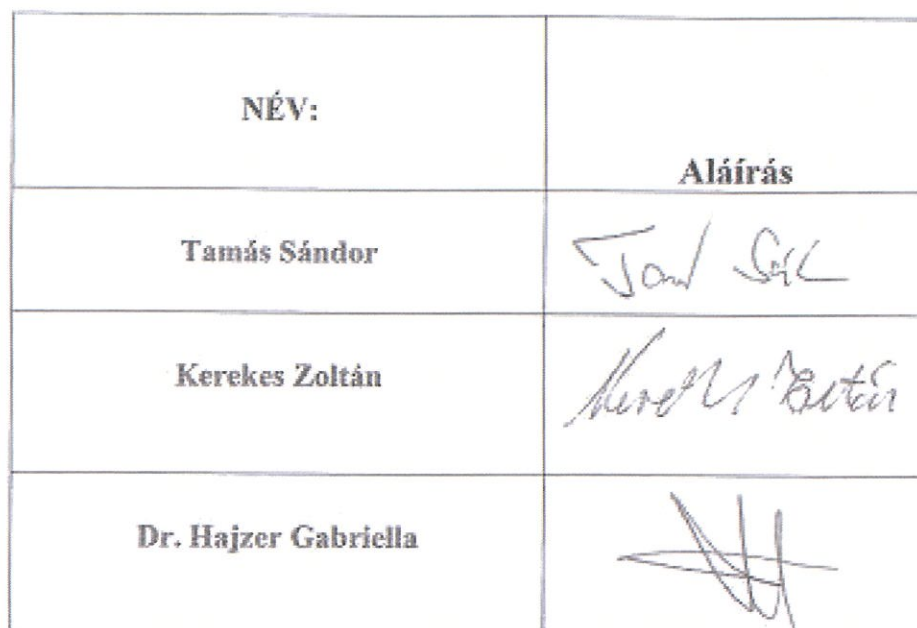 NÉV:
Aláírás
Tamás Sándor
Kerekes Zoltán
Kerekes Zoltán
Dr. Hajzer Gabriella